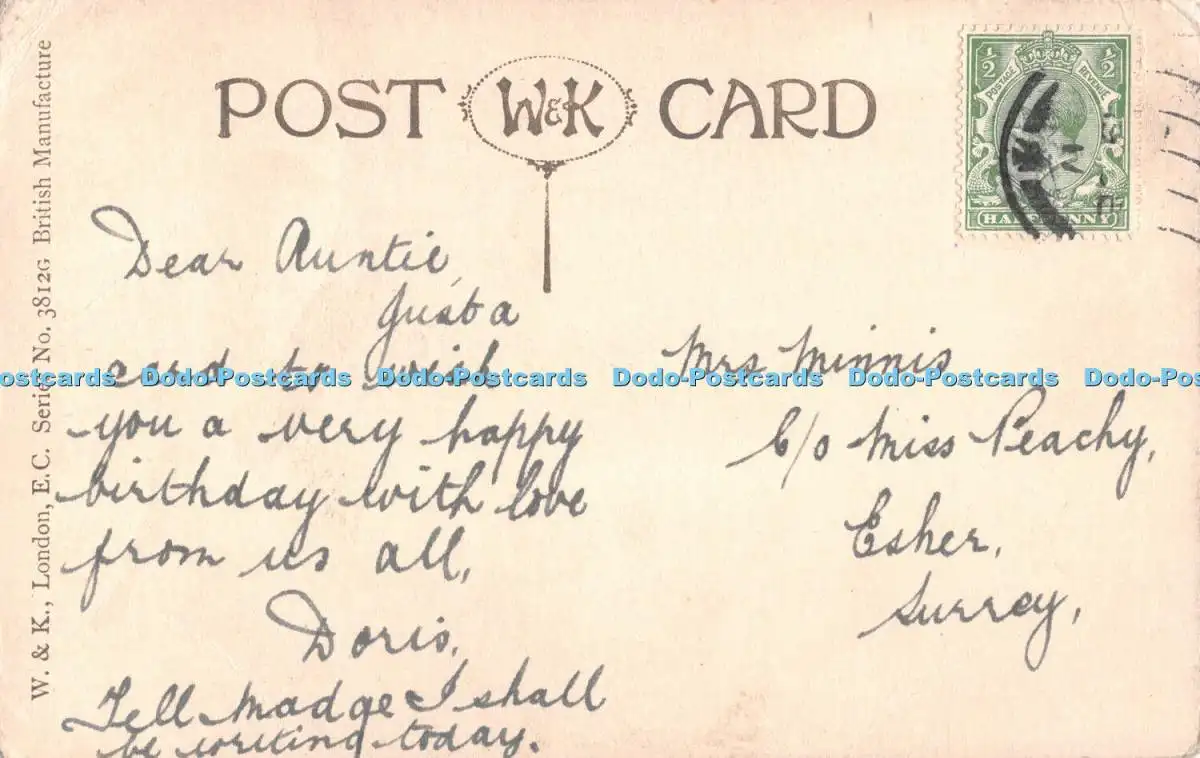 POST W&K CARD
W. & K., London, E.C. Series No. 3812G British Manufacture
½ ½
POSTAGE REVENUE
HALFPENNY
Dear Auntie,
Just a
card to wish
you a very happy
birthday with love
from us all,
Doris.
Tell Madge I shall
be writing today.
Mrs Minnis
C/o Miss Peachy,
Esher,
Surrey,
Dodo-Postcards Dodo-Postcards Dodo-Postcards Dodo-Postcards Dodo-Postcards